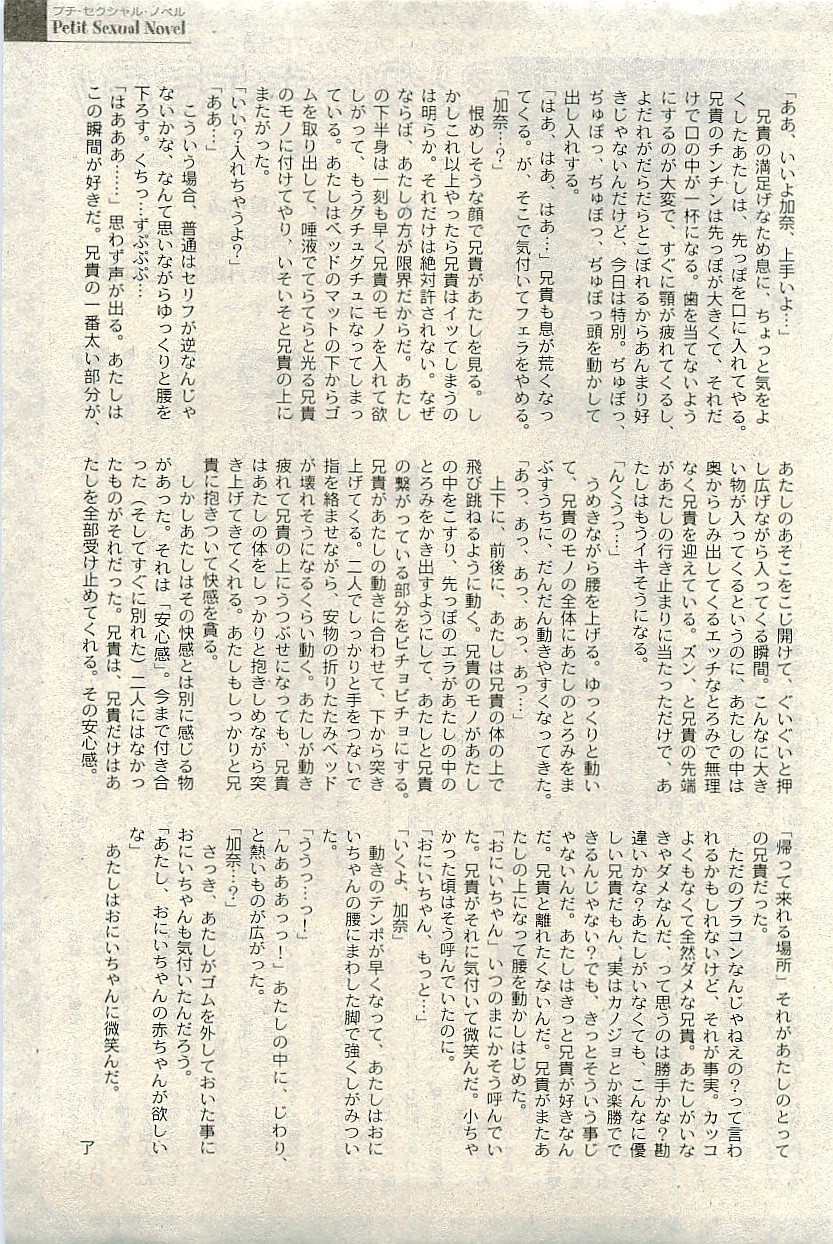 プチ・セクシャル・ノベル
Petit Sexual Novel
「ああ、いいよ加奈、上手いよ…」
　兄貴の満足げなため息に、ちょっと気をよ
くしたあたしは、先っぽを口に入れてやる。
兄貴のチンチンは先っぽが大きくて、それだ
けで口の中が一杯になる。歯を当てないよう
にするのが大変で、すぐに顎が疲れてくるし、
よだれがだらだらとこぼれるからあんまり好
きじゃないんだけど、今日は特別。ぢゅぼっ、
ぢゅぼっ、ぢゅぼっ、ぢゅぼっ頭を動かして
出し入れする。
「はあ、はあ、はあ…」兄貴も息が荒くなっ
てくる。が、そこで気付いてフェラをやめる。
「加奈…？」
　恨めしそうな顔で兄貴があたしを見る。し
かしこれ以上やったら兄貴はイッてしまうの
は明らか。それだけは絶対許されない。なぜ
ならば、あたしの方が限界だからだ。あたし
の下半身は一刻も早く兄貴のモノを入れて欲
しがって、もうグチュグチュになってしまっ
ている。あたしはベッドのマットの下からゴ
ムを取り出して、唾液でてらてらと光る兄貴
のモノに付けてやり、いそいそと兄貴の上に
またがった。
「いい？入れちゃうよ？」
「ああ…」
　こういう場合、普通はセリフが逆なんじゃ
ないかな、なんて思いながらゆっくりと腰を
下ろす。くちっ…ずぷぷぷ…
「はあああ……」思わず声が出る。あたしは
この瞬間が好きだ。兄貴の一番太い部分が、
あたしのあそこをこじ開けて、ぐいぐいと押
し広げながら入ってくる瞬間。こんなに大き
い物が入ってくるというのに、あたしの中は
奥からしみ出してくるエッチなとろみで無理
なく兄貴を迎えている。ズン、と兄貴の先端
があたしの行き止まりに当たっただけで、あ
たしはもうイキそうになる。
「んくうっ…」
　うめきながら腰を上げる。ゆっくりと動い
て、兄貴のモノの全体にあたしのとろみをま
ぶすうちに、だんだん動きやすくなってきた。
「あっ、あっ、あっ、あっ、あっ…」
　上下に、前後に、あたしは兄貴の体の上で
飛び跳ねるように動く。兄貴のモノがあたし
の中をこすり、先っぽのエラがあたしの中の
とろみをかき出すようにして、あたしと兄貴
の繋がっている部分をビチョビチョにする。
兄貴があたしの動きに合わせて、下から突き
上げてくる。二人でしっかりと手をつないで
指を絡ませながら、安物の折りたたみベッド
が壊れそうになるくらい動く。あたしが動き
疲れて兄貴の上にうつぶせになっても、兄貴
はあたしの体をしっかりと抱きしめながら突
き上げてきてくれる。あたしもしっかりと兄
貴に抱きついて快感を貪る。
　しかしあたしはその快感とは別に感じる物
があった。それは「安心感」。今まで付き合
った（そしてすぐに別れた）二人にはなかっ
たものがそれだった。兄貴は、兄貴だけはあ
たしを全部受け止めてくれる。その安心感。
「帰って来れる場所」それがあたしのとって
の兄貴だった。
　ただのブラコンなんじゃねえの？って言わ
れるかもしれないけど、それが事実。カッコ
よくもなくて全然ダメな兄貴。あたしがいな
きゃダメなんだ、って思うのは勝手かな？勘
違いかな？あたしがいなくても、こんなに優
しい兄貴だもん、実はカノジョとか楽勝でで
きるんじゃない？でも、きっとそういう事じ
ゃないんだ。あたしはきっと兄貴が好きなん
だ。兄貴と離れたくないんだ。兄貴がまたあ
たしの上になって腰を動かしはじめた。
「おにいちゃん」いつのまにかそう呼んでい
た。兄貴がそれに気付いて微笑んだ。小ちゃ
かった頃はそう呼んでいたのに。
「おにいちゃん、もっと…」
「いくよ、加奈」
　動きのテンポが早くなって、あたしはおに
いちゃんの腰にまわした脚で強くしがみつい
た。
「ううっ…っ！」
「んあああっっ！」あたしの中に、じわり、
と熱いものが広がった。
「加奈…？」
　さっき、あたしがゴムを外しておいた事に
おにいちゃんも気付いたんだろう。
「あたし、おにいちゃんの赤ちゃんが欲しい
な」
　あたしはおにいちゃんに微笑んだ。
了